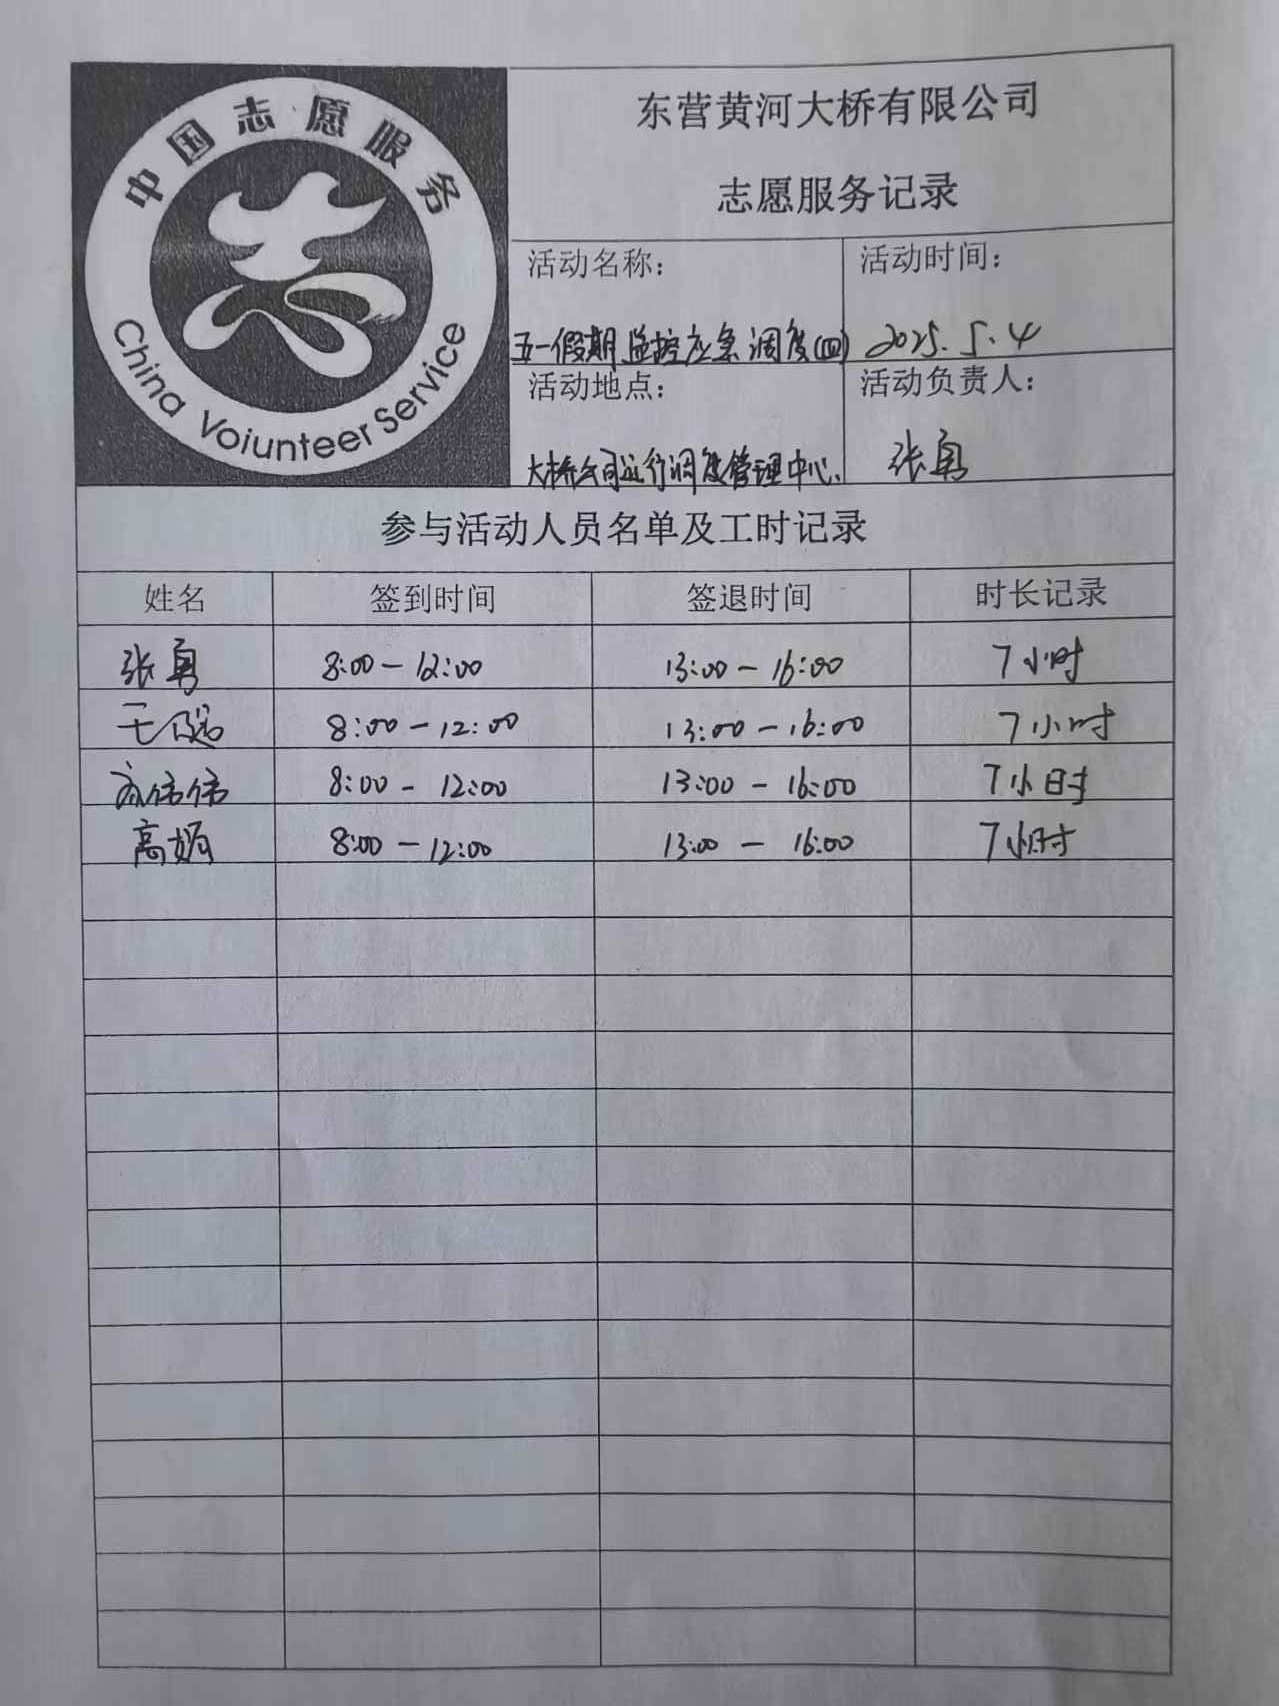 中国志愿服务
China Voiunteer Service
东营黄河大桥有限公司
志愿服务记录
活动名称： 活动时间：
五一假期监控应急调度(四) 2025.5.4
活动地点： 活动负责人：
大桥公司运行调度管理中心 张勇
参与活动人员名单及工时记录
姓名 签到时间 签退时间 时长记录
张勇 8:00-12:00 13:00-16:00 7小时
王聪 8:00-12:00 13:00-16:00 7小时
伟伟 8:00-12:00 13:00-16:00 7小时
高娟 8:00-12:00 13:00-16:00 7小时